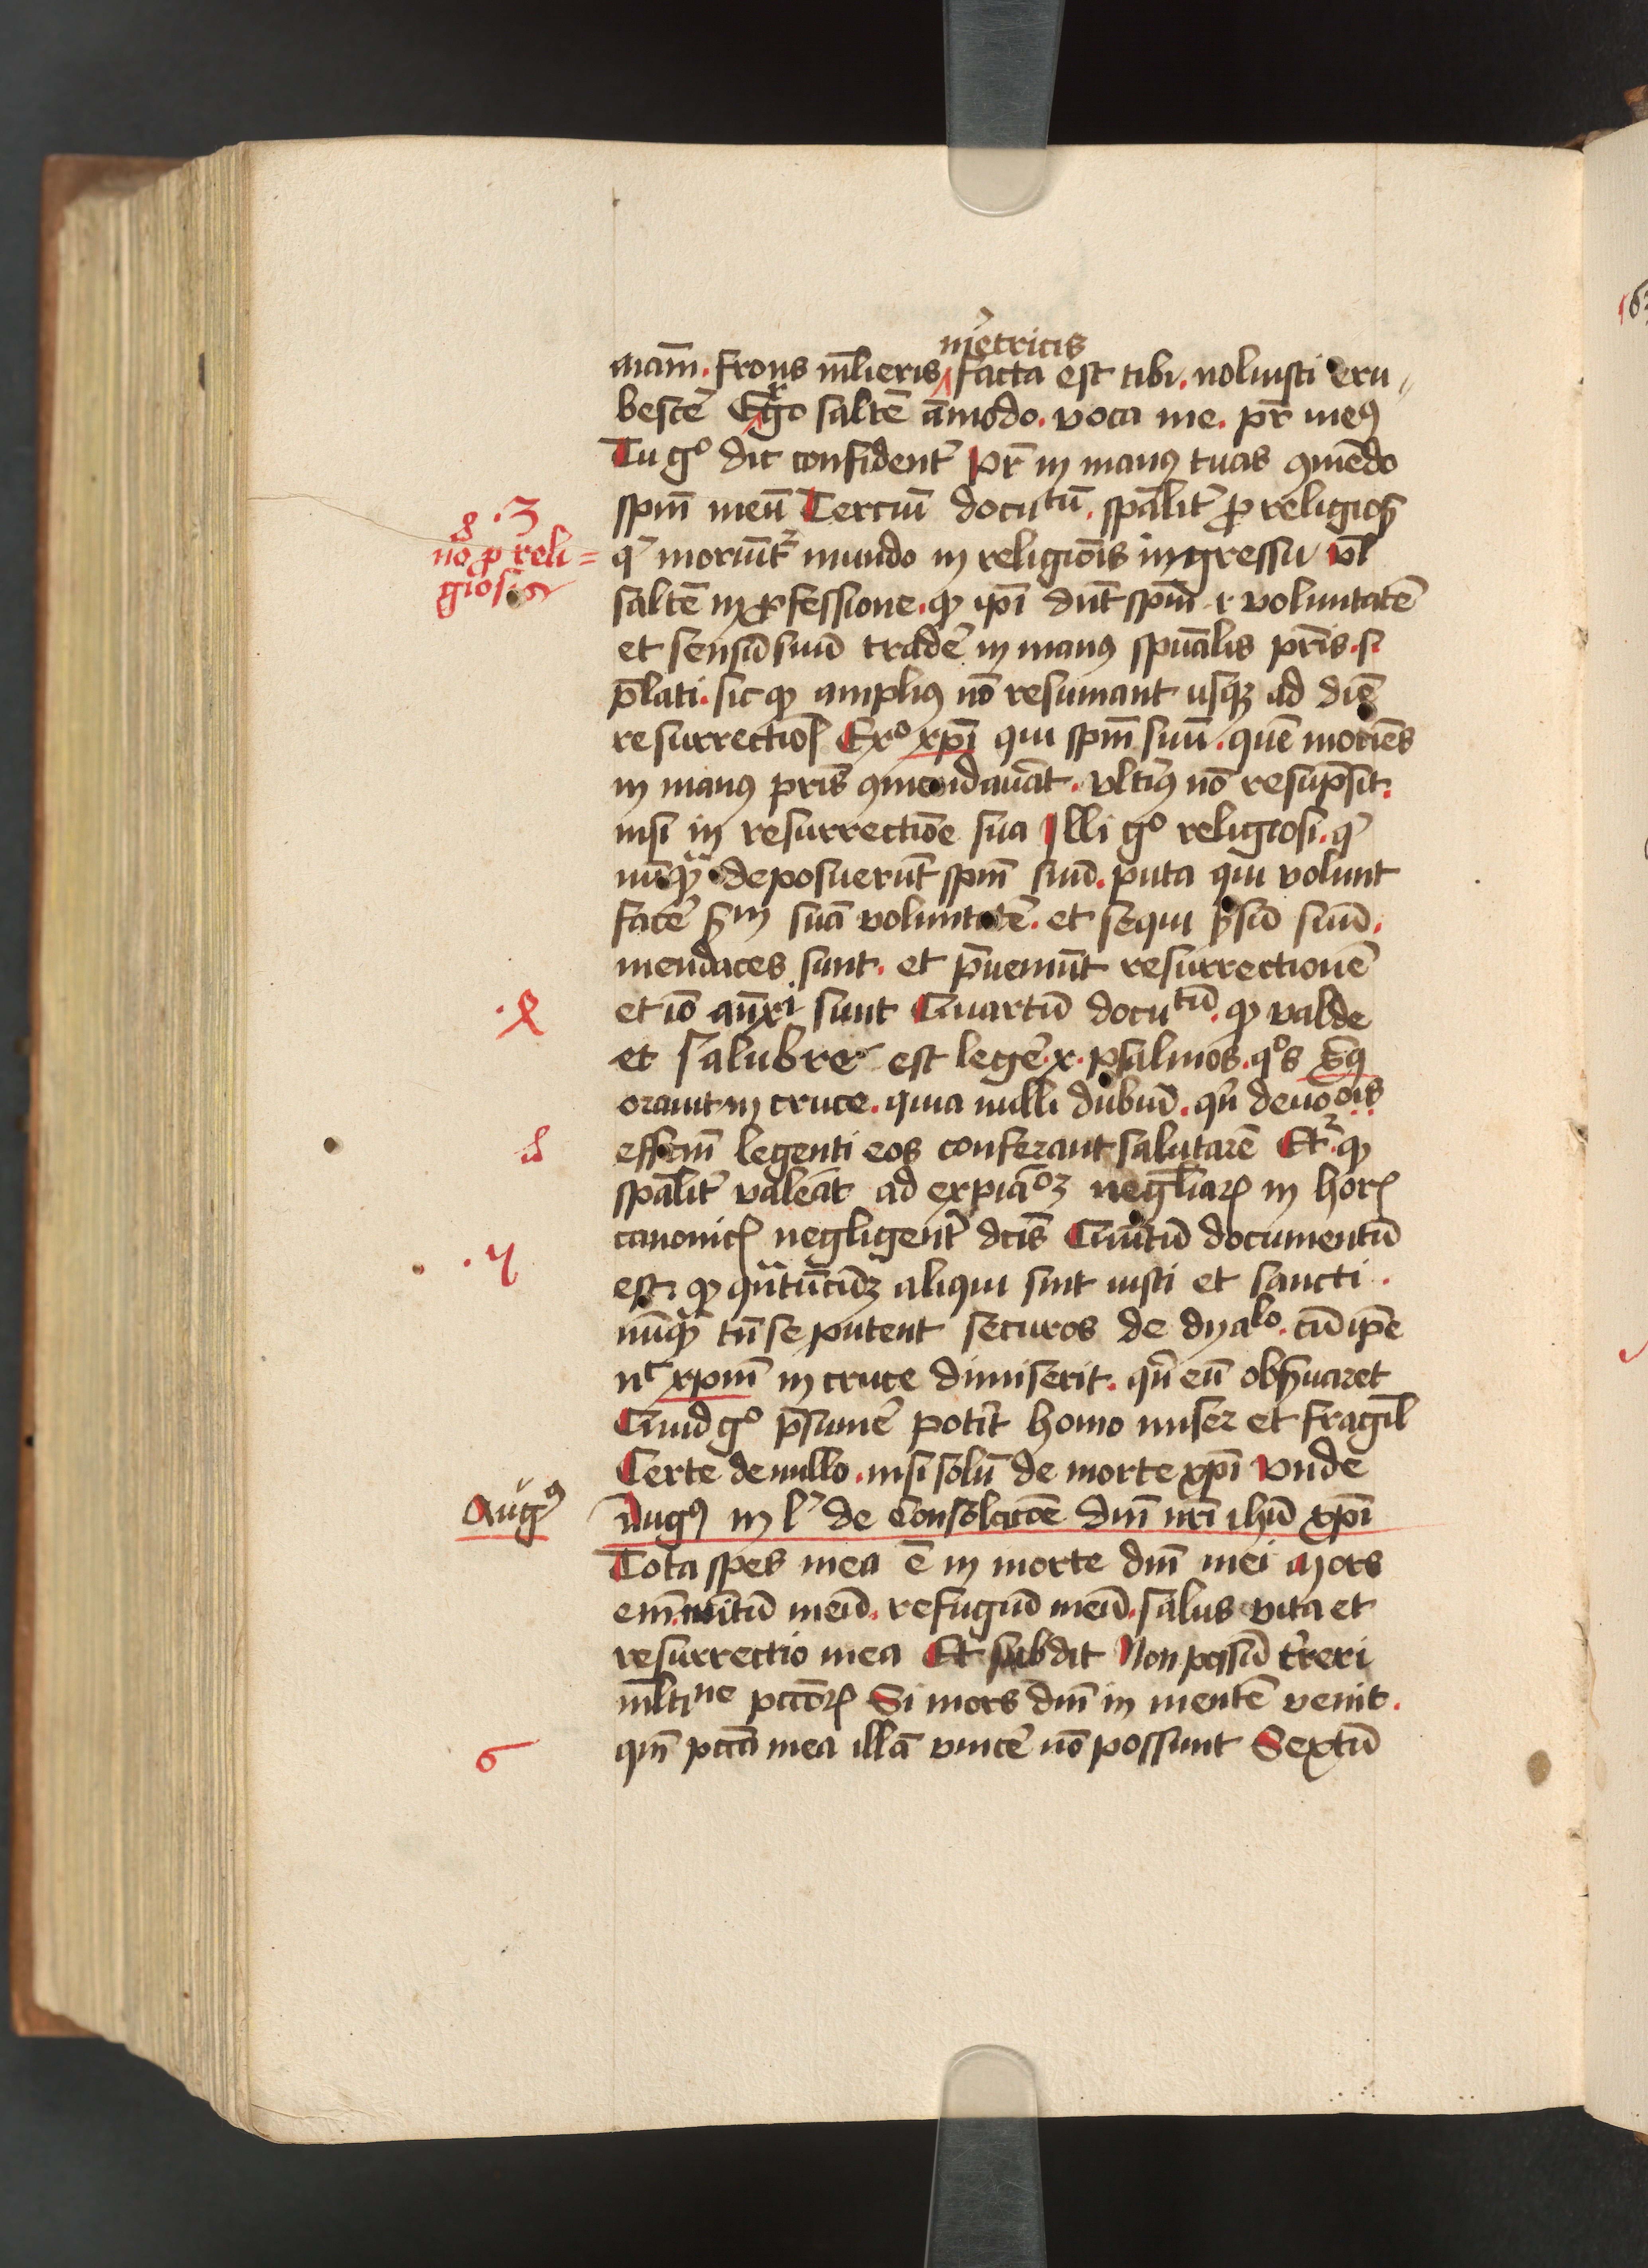 m̄etricis
mam̄. frons ml̄ieris facta est tibi. noluisti eru
bescē Ergo saltē āmodo. voca me. pr̄ meꝰ
Tu gͦ dic confident᷑ Pr̄ in manꝰ tuas ꝯmēdo
spm̄ meū Terciū docutū. spālit᷑ ꝓ religiosꝭ
.3
nō ꝓ reli=
giosis
q̄ moriūt᷑ mundo in religiōis ingressu vl̄
saltē in ꝓfessione. ꝙ ip̄i dn̄t spm̄ ⁊ voluntatē
et sensū suū tradē in manꝰ spūalis pr̄is. sꝫ
p̄lati. sic ꝙ ampliꝰ nō resumant usqꝫ ad diē
resurrectiōꝭ Exͦ xp̄i qui spm̄ suū. quē moriēs
in manꝰ pr̄is ꝯmendauāt. vlt̄iꝰ nō resūpsit.
nisi in resurrectiōe sua Illi gͦ religiosi. q̄
nūqꝫ deposuerūt spm̄ suū. puta qui volunt
facē sm̄ suā voluntatē. et sequi sēsū suū.
mendaces sunt. et p̄ueniūt resurrectionē
.4
et iō an̄xi sunt Quartū docutū. ꝙ valde
et salubre est legē .x. psalmos. qͦs xp̄c
orauit in cruce. quia nulli dubiū. qn̄ deuōois
effcm̄ legenti eos conferant salutarē Et᷑ ꝙ
spālit᷑ valeāt ad expiāoꝫ negl̄iaꝝ in horꝭ
canonicꝭ negligent᷑ dc̄is Quītū documentū
.5
est. ꝙ qn̄tūcūqꝫ aliqui sint iusti et sancti.
nūqꝫ tn̄ se putent securos de dyalo. cū ip̄e
nc̄ xp̄m in cruce dimiserit. qn̄ eū obs̄uaret
Quid gͦ p̄sumē potit homo miser et fragil̄
Certe de nullo. nisi solū de morte xp̄i Vnde
Augꝰ
Augꝰ in lͥ de Consolatōe dn̄i nr̄i ihū xp̄i
Tota spes mea ē in morte dn̄i mei Mors
em̄ meitū meū. refugiū meū. salus vita et
resurrectio mea Et subdit Non possū t᷑reri
ml̄tine pcc̄orꝝ Si mors dn̄i in mentē venit.
6
qm̄ pcc̄a mea illā vincē nō possunt Sextū